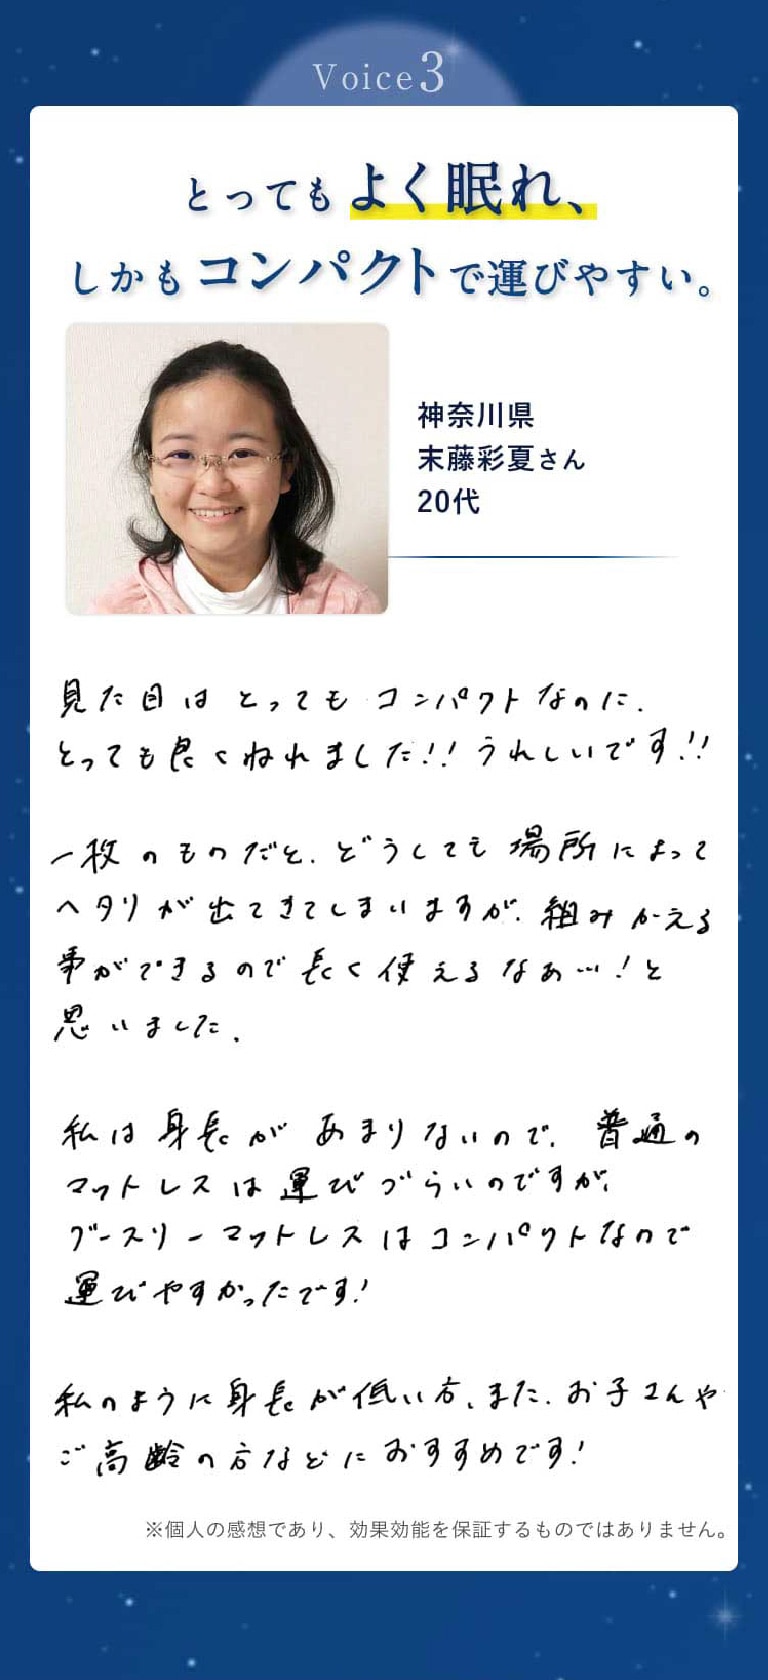 Voice3
とってもよく眠れ、
しかもコンパクトで運びやすい。
神奈川県
末藤彩夏さん
20代
見た目はとってもコンパクトなのに、
とっても良くねれました!!うれしいです!!
一枚のものだと、どうしても場所によって
ヘタリが出てきてしまいますが、組みかえる
事ができるので長く使えるなぁ…!と
思いました。
私は身長があまりないので、普通の
マットレスは運びづらいのですが、
グースリーマットレスはコンパクトなので
運びやすかったです!
私のように身長が低い方、また、お子さんや
ご高齢の方などにおすすめです!
※個人の感想であり、効果効能を保証するものではありません。